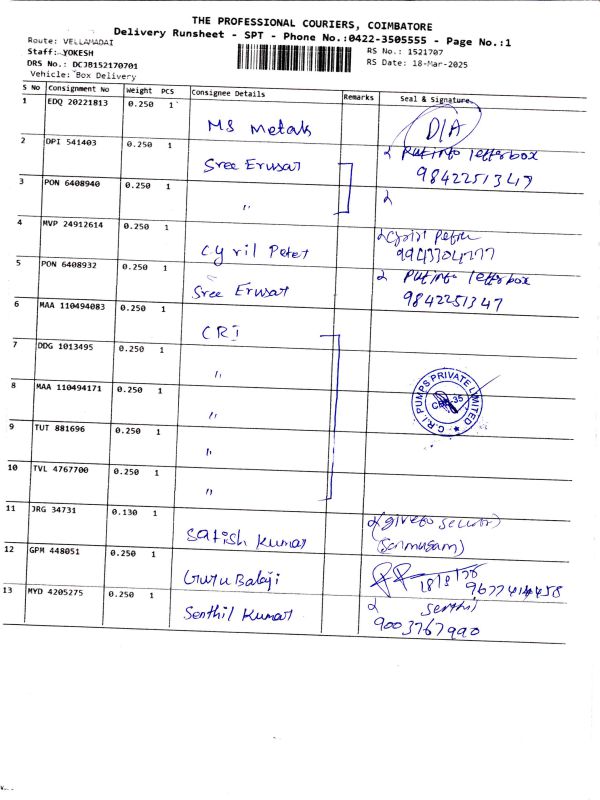 THE PROFESSIONAL COURIERS, COIMBATORE
Delivery Runsheet - SPT - Phone No.:0422-3505555 - Page No.:1
Route: VELLAMADAI
RS No.: 1521707
Staff: YOKESH
RS Date: 18-Mar-2025
DRS No.: DCJB152170701
Vehicle: Box Delivery
S No Consignment No Weight PCS Consignee Details Remarks Seal & Signature
1 EDQ 20221813 0.250 1 MS Metals D/A
2 DPI 541403 0.250 1 Sree Erusat Put into letterbox
9842251347
3 PON 6408940 0.250 1 "
4 MVP 24912614 0.250 1 Cyril Peter
5 PON 6408932 0.250 1 Sree Erusat Put into letterbox
9842251347
6 MAA 110494083 0.250 1 CRI
7 DDG 1013495 0.250 1 "
8 MAA 110494171 0.250 1 "
C.R.I. PUMPS PRIVATE LIMITED
9 TUT 881696 0.250 1 "
10 TVL 4767700 0.250 1 "
11 JRG 34731 0.130 1 Satish Kumar
12 GPM 448051 0.250 1 Guru Balaji
13 MYD 4205275 0.250 1 Senthil Kumar Senthil
9003767990